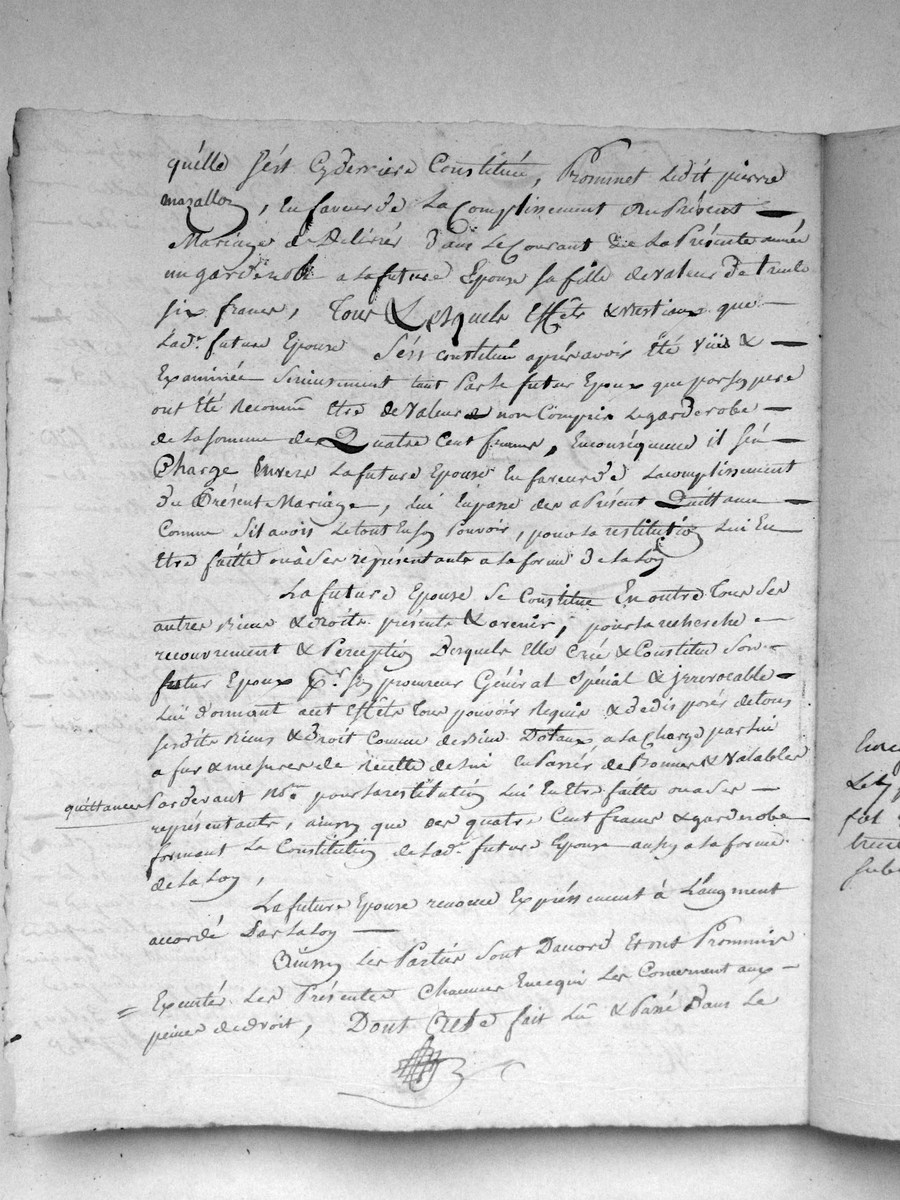 quélle sést Cyderriere Constitué, Prominet ledit pierre
mazallon, En faveur de La Complissement du Présent
Mariage de delivrer dans Le Courant de La Présente année
un garderobe a la future Epouse sa fille de valeur de trente
six francs, Tous Lesquels Effets & vestiaux que
Lad.e future Epouse sést constitué aprés avoir été vüe &
Examinée serieusement tant par le futur Epoux que par son pere
ont Eté Reconnu Etre de valeur non Compris Le garderobe
de La somme de Quatre Cent francs, En conséquence il sén
Charge Envers La future Epouse En faveur de Lacomplissement
du Présent Mariage, lui En passé des a Present Quittance
Comme sil avoit Le tout En son Pouvoir, pour la restitution Lui En
Etre faitte ou à ses représentants a la forme de la Loy
La future Epouse se Constitue En outre Tous ses
autres Biens & droits présents & avenir, pour la recherche
recouvrement & Perception desquels elle Crée & Constitue son
futur Epoux Pr. son procureur Général Spécial & jrrevocable
Lui donnant aux Effets Tous pouvoir Requis & de disposer de tous
sesdits Biens & droit Comme de Biens Dotaux a la Charge par lui
a fur & mesure de Recette de lui En Passér de Bonnes & Valables
quittances Pardevant No.re pour la restitution Lui En Etre faitte ou a ses
représentants, ainsy que des quatre Cent francs & garderobe
formant La Constitution de Lad.e future Epouse aussy a la forme
de la Loy,
La future Epouse renonce Expréssement à Laugment
accordé Par la loy
Ainsy Les Parties sont Daccord Et ont Prommis
Executér Les Présentes Chacunes En ce qui Les Concernent aux
peines de droit, Dont Acte fait Lû & Passé dans Le